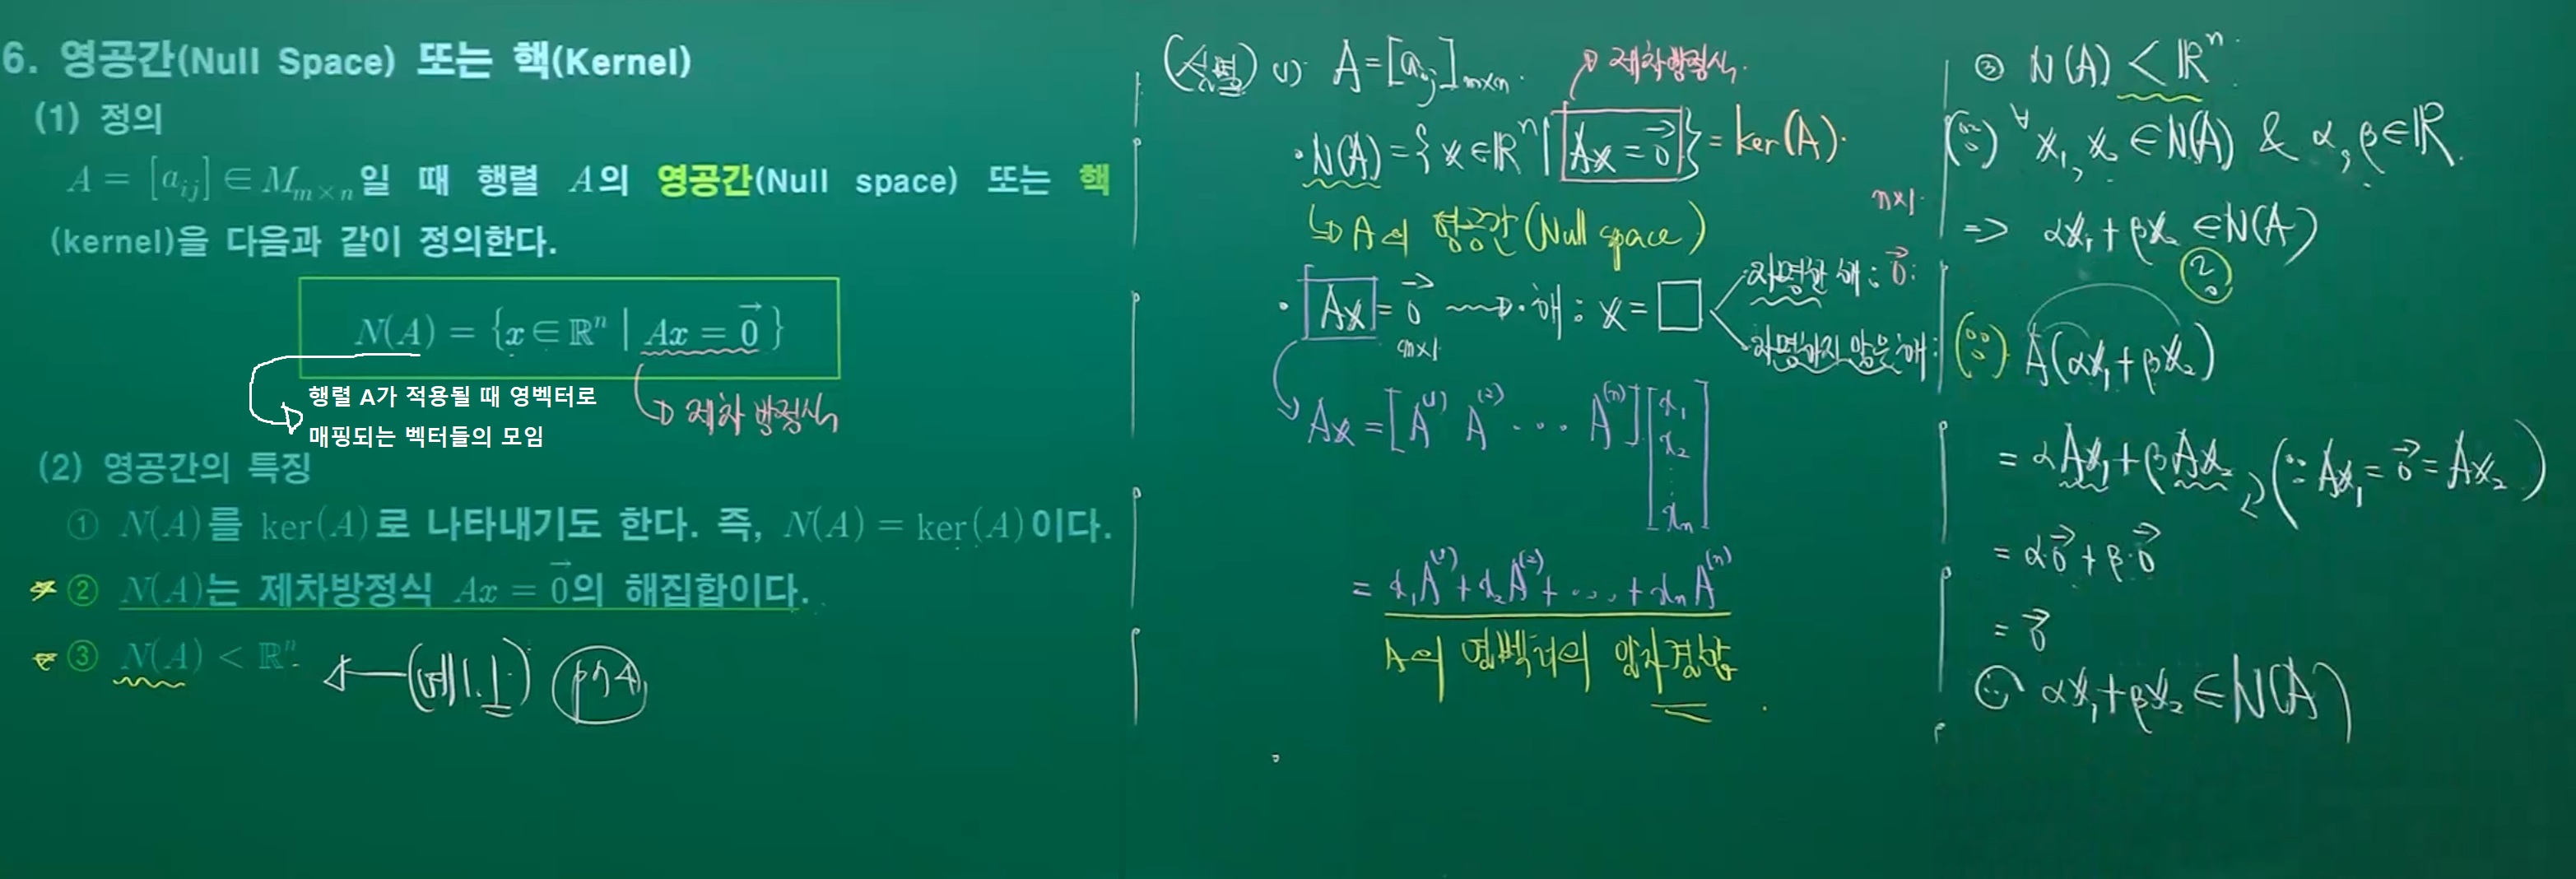 6. 영공간(Null Space) 또는 핵(Kernel)
(1) 정의
A = [a_{ij}] ∈ M_{m×n}일 때 행렬 A의 영공간(Null space) 또는 핵
(kernel)을 다음과 같이 정의한다.
N(A) = {x ∈ ℝⁿ | Ax = 0⃗}
행렬 A가 적용될 때 영벡터로
매핑되는 벡터들의 모임
제차 방정식
(2) 영공간의 특징
① N(A)를 ker(A)로 나타내기도 한다. 즉, N(A) = ker(A)이다.
② N(A)는 제차방정식 Ax = 0⃗의 해집합이다.
③ N(A) < ℝⁿ
(예1.1) p74
(설명) (1) A = [a_{ij}]_{m×n}.
제차방정식.
· N(A) = {x ∈ ℝⁿ | Ax = 0⃗} = ker(A).
↳ A의 영공간(Null space)
n×1.
· Ax = 0⃗ ⟶ · 해 : x = □
m×1
자명한 해 : 0⃗.
자명하지 않은 해 :
Ax = [A⁽¹⁾ A⁽²⁾ ··· A⁽ⁿ⁾] [x₁ x₂ ⋮ xₙ]
= x₁A⁽¹⁾ + x₂A⁽²⁾ + ... + xₙA⁽ⁿ⁾
A의 열벡터의 일차결합
③ N(A) < ℝⁿ.
(∵) ∀x₁, x₂ ∈ N(A) & α, β ∈ ℝ.
=> αx₁ + βx₂ ∈ N(A)
?
(∵) A(αx₁ + βx₂)
= αAx₁ + βAx₂, (∵ Ax₁ = 0⃗ = Ax₂)
= α·0⃗ + β·0⃗
= 0⃗
∴ αx₁ + βx₂ ∈ N(A)